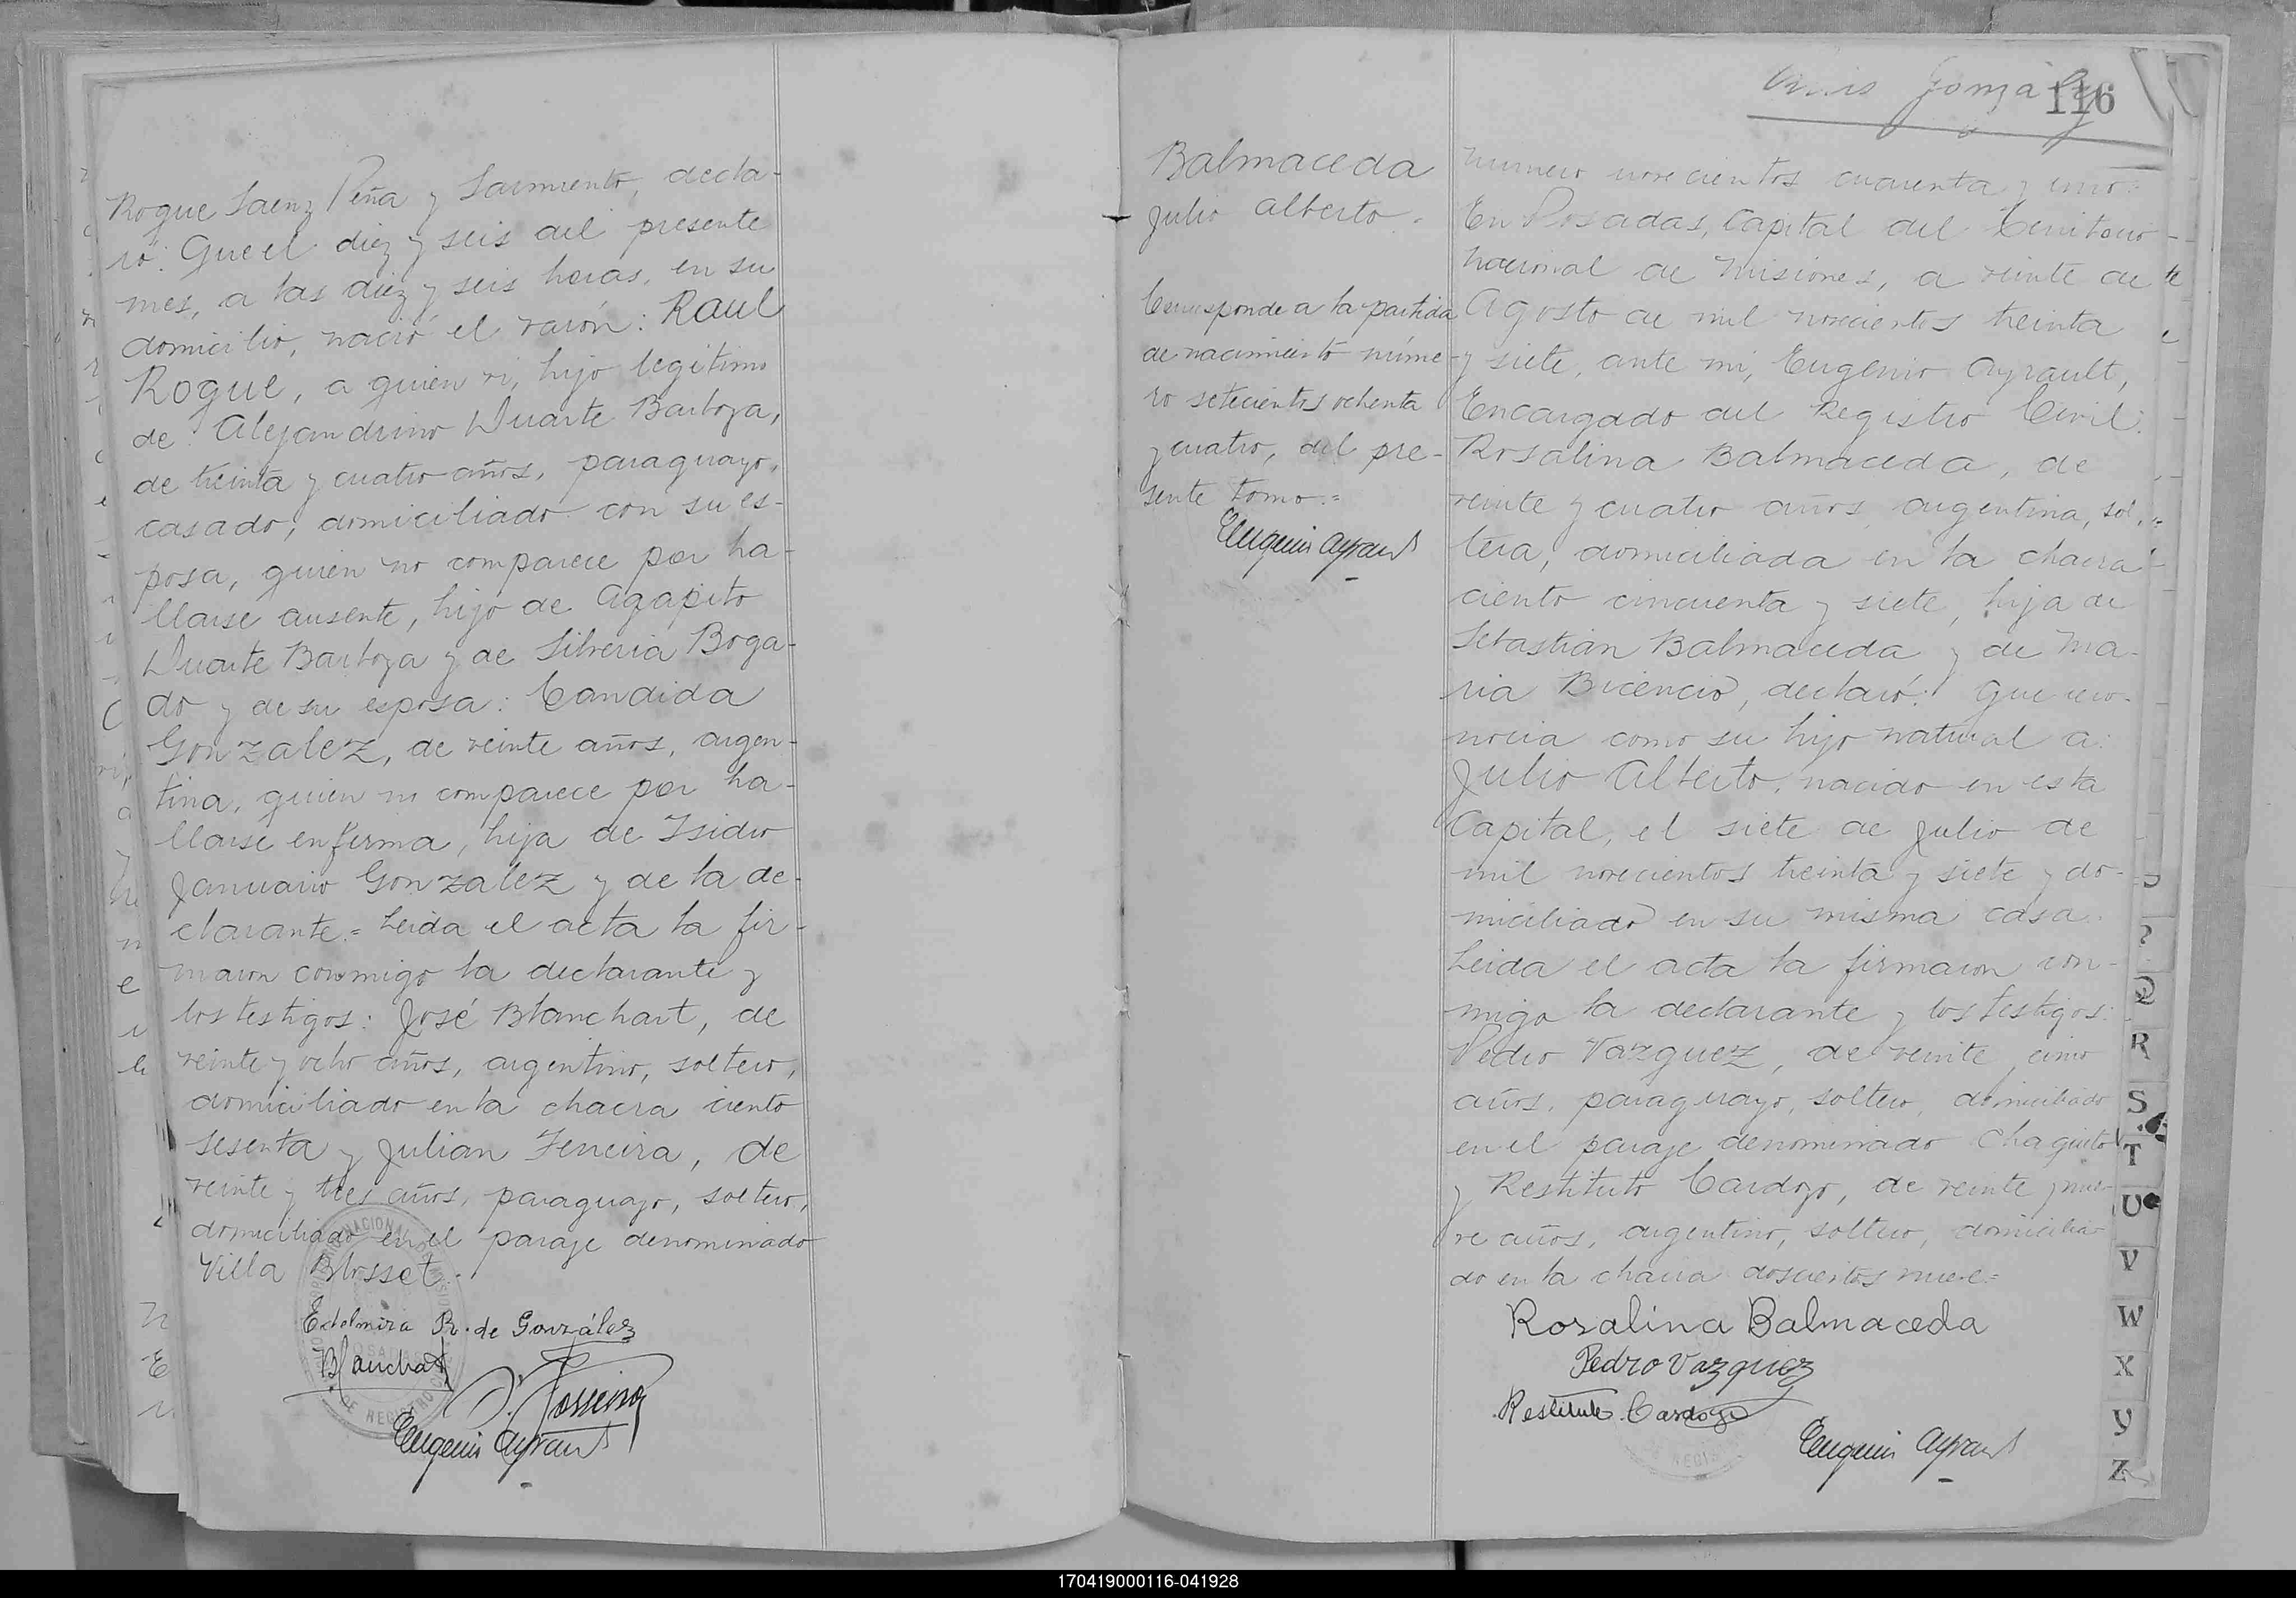 Roque Saenz Peña y Sarmiento, decla-
ró: Que el diez y seis del presente
mes, a las diez y seis horas, en su
domicilio, nació el varón: Raul
Roque, a quien vi, hijo legitimo
de: Alejandrino Duarte Barboza,
de treinta y cuatro años, paraguayo,
casado, domiciliado con su es-
posa, quien no comparece por ha-
llarse ausente, hijo de Agapito
Duarte Barboza y de Silveria Boga-
do y de su esposa: Candida
Gonzalez, de veinte años, argen-
tina, quien no comparece por ha-
llarse enferma, hija de Isidro
Januario Gonzalez y de la de-
clarante.= Leida el acta la fir-
maron conmigo la declarante y
los testigos: José Blanchart, de
veinte y ocho años, argentino, soltero,
domiciliado en la chacra ciento
sesenta y Julian Ferreira, de
veinte y tres años, paraguayo, soltero,
domiciliado en el paraje denominado
Villa Blosset.
Edelmira R. de González
Blanchart
J. Ferreira
Eugenio Ayrault
González
116
Balmaceda
Julio Alberto.
Corresponde a la partida
de nacimiento núme-
ro setecientos ochenta
y cuatro, del pre-
sente tomo.=
Eugenio Ayrault
Numero novecientos cuarenta y uno:=
En Posadas, Capital del Territorio
Nacional de Misiones, a veinte de
Agosto de mil novecientos treinta
y siete, ante mi, Eugenio Ayrault,
Encargado del Registro Civil:
Rosalina Balmaceda, de
veinte y cuatro años, argentina, sol-
tera, domiciliada en la chacra
ciento cincuenta y siete, hija de
Sebastian Balmaceda y de Ma-
ria Bicencio, declaró: Que reco-
nocia como su hijo natural a:
Julio Alberto, nacido en esta
Capital, el siete de Julio de
mil novecientos treinta y siete y do-
miciliado en su misma casa.
Leida el acta la firmaron con-
migo la declarante y los testigos:
Pedro Vazquez, de veinte cinco
años, paraguayo, soltero, domiciliado
en el paraje denominado Chaquito
y Restituto Cardozo, de veinte y nue-
ve años, argentino, soltero, domicilia-
do en la chacra doscientos nueve.=
Rosalina Balmaceda
Pedro Vazquez
Restituto Cardozo
Eugenio Ayrault
Q
R
S
T
U
V
W
X
Y
Z
170419000116-041928